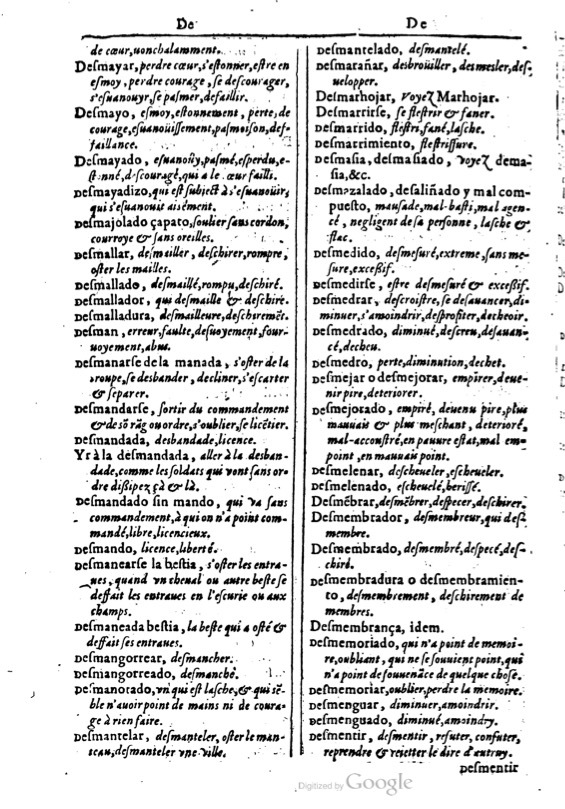 De
de cœur, nonchalamment.
Desmayar, perdre cœur, s'estonner, estre en
esmoy, perdre courage, se descourager,
s'esuanouyr, se pasmer, defaillir.
Desmayo, esmoy, estonnement, perte, de
courage, esuanoüissement, pasmoison, def-
faillance.
Desmayado, esuanoüy, pasmé, esperdu, e-
stonné, descouragé, qui a le cœur failly.
Desmayadizo, qui est subiect à s'esuanoüir,
qui s'esuanouit aisément.
Desmajolado çapato, soulier sans cordon,
courroye & sans oreilles.
Desmallar, desmailler, deschirer, rompre,
oster les mailles.
Desmallado, desmaillé, rompu, deschiré.
Desmallador, qui desmaille & deschire.
Desmalladura, desmailleure, deschiremēt.
Desman, erreur, faulte, desuoyement, four-
uoyement, abus.
Desmanarse de la manada, s'oster de la
troupe, se desbander, decliner, s'escarter
& separer.
Desmandarse, sortir du commandement
& de sō rāg ou ordre, s'oublier, se licētier.
Desmandada, desbandade, licence.
Yr à la desmandada, aller à la desban-
dade, comme les soldats qui vont sans or-
dre dissipez çà & là.
Desmandado sin mando, qui va sans
commandement, à qui on n'a point com-
mandé, libre, licencieux.
Desmando, licence, liberté.
Desmanearse la bestia, s'oster les entra-
ues, quand vn cheual ou autre beste se
deffait les entraues en l'escurie ou aux
champs.
Desmaneada bestia, la beste qui a osté &
deffait ses entraues.
Desmangorrear, desmancher.
Desmangorreado, desmanché.
Desmanotado, vn qui est lasche, & qui sē-
ble n'auoir point de mains ni de coura-
ge à rien faire.
Desmantelar, desmanteler, oster le man-
teau, desmanteler vne ville.
De
Desmantelado, desmantelé.
Desmarañar, desbroüiller, desmesler, des-
uelopper.
Desmarhojar, voyez Marhojar.
Desmarrirse, se flestrir & faner.
Desmarrido, flestri, fané, lasche.
Desmarrimiento, flestrissure.
Desmasia, desmasiado, voyez dema-
sia, &c.
Desmazalado, desaliñado y mal com-
puesto, mausade, mal-basti, mal agen-
cé, negligent de sa personne, lasche &
flac.
Desmedido, desmesuré, extreme, sans me-
sure, excessif.
Desmedirse, estre desmesuré & excessif.
Desmedrar, descroistre, se desauancer, di-
minuer, s'amoindrir, desprofiter, decheoir.
Desmedrado, diminué, descreu, desauan-
cé, decheu.
Desmedro, perte, diminution, dechet.
Desmejar o desmejorar, empirer, deue-
nir pire, deteriorer.
Desmejorado, empiré, deuenu pire, plus
mauuais & plus meschant, deterioré,
mal-accoustré, en pauure estat, mal em
point, en mauuais point.
Desmelenar, descheueler, escheueler.
Desmelenado, escheuelé, herissé.
Desmēbrar, desmēbrer, despecer, deschirer.
Desmembrador, desmembreur, qui des-
membre.
Desmembrado, desmembré, despecé, des-
chiré.
Desmembradura o desmembramien-
to, desmembrement, deschirement de
membres.
Desmembrança, idem.
Desmemoriado, qui n'a point de memoi-
re, oubliant, qui ne se souuient point, qui
n'a point de souuenāce de quelque chose.
Desmemoriar, oublier, perdre la memoire.
Desmenguar, diminuer, amoindrir.
Desmenguado, diminué, amoindry.
Desmentir, desmentir, refuter, confuter,
reprendre & reietter le dire d'autruy.
desmentir
Digitized by Google